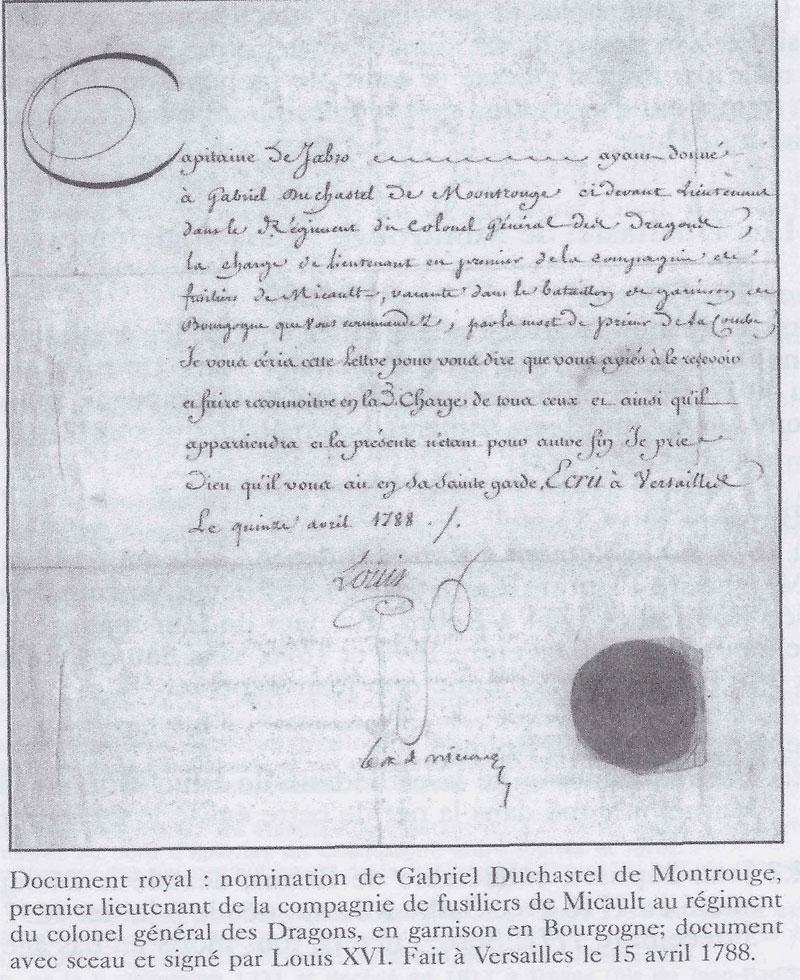 Capitaine de Jabro ayant donné
à Gabriel Duchastel de Montrouge ci devant Lieutenant
dans le Régiment du Colonel Général des Dragons,
la charge de Lieutenant en premier de la compagnie de
fusiliers de Micault, vacante dans le bataillon de garnison de
Bourgogne que vous commandez, par la mort de prieur de la Combe,
Je vous écris cette Lettre pour vous dire que vous ayiés à le recevoir
et faire reconnoitre en lad. Charge de tous ceux et ainsi qu'il
appartiendra et la présente n'étant pour autre fin Je prie
Dieu qu'il vous ait en sa sainte garde, Ecrit à Versailles
Le quinze avril 1788 ./.
Louis
Document royal : nomination de Gabriel Duchastel de Montrouge,
premier lieutenant de la compagnie de fusiliers de Micault au régiment
du colonel général des Dragons, en garnison en Bourgogne; document
avec sceau et signé par Louis XVI. Fait à Versailles le 15 avril 1788.